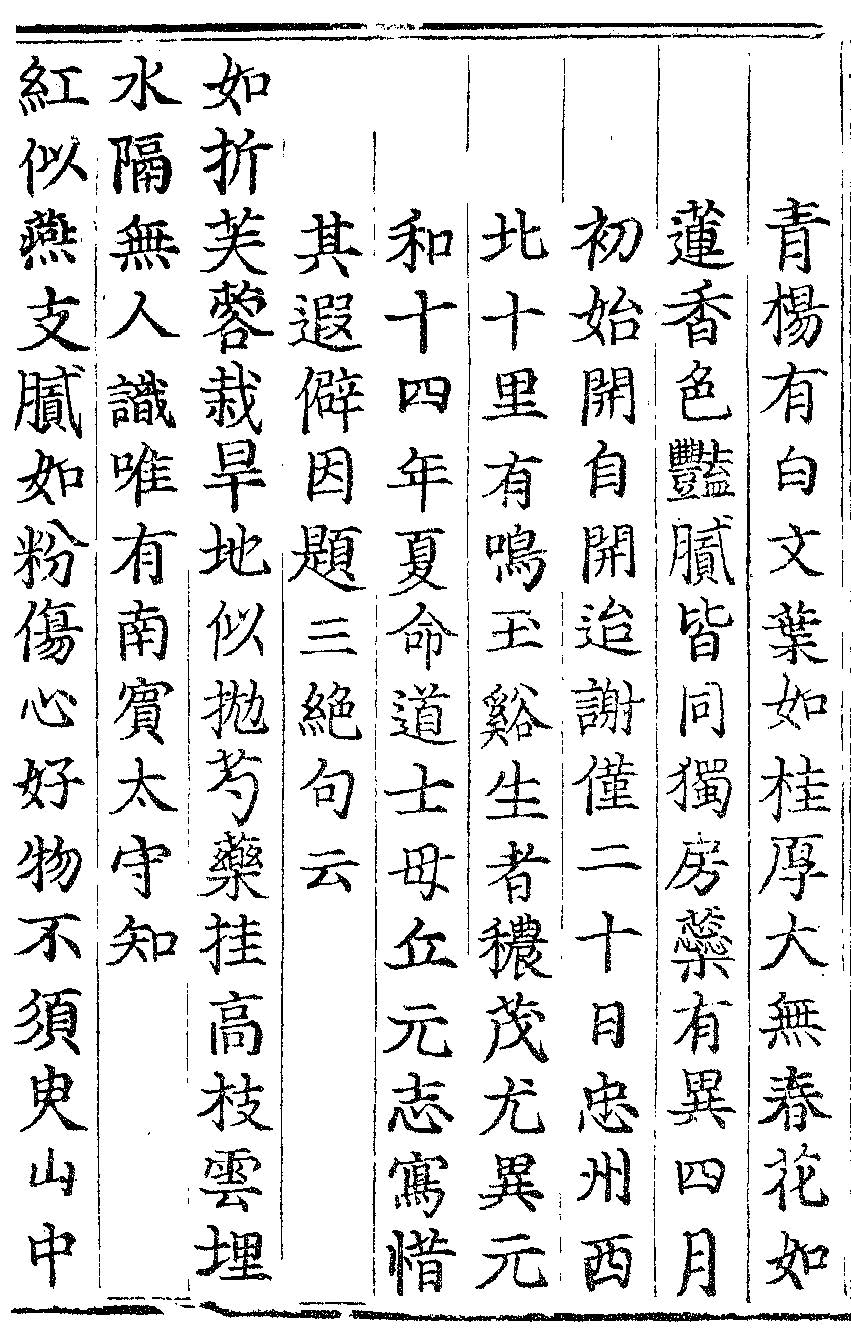 青楊有白文葉如桂厚大無春花如
蓮香色豔膩皆同獨房蘂有異四月
初始開自開迨謝僅二十日忠州西
北十里有鳴玉谿生者穠茂尤異元
和十四年夏命道士毋丘元志寫惜
其遐僻因題三絕句云
如折芙蓉栽旱地似抛芍藥挂高枝雲埋
水隔無人識唯有南賓太守知
紅似燕支膩如粉傷心好物不須臾山中